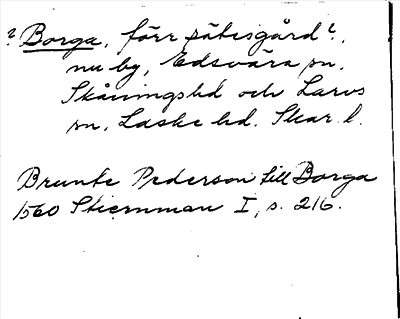 ? Borga, förr sätesgård?,
nu by, Edsvära sn.
Skånings hd och Larvs
sn. Laske hd. Skar. l.
Brunte Pederson till Borga
1560 Stiernman I, s. 216.